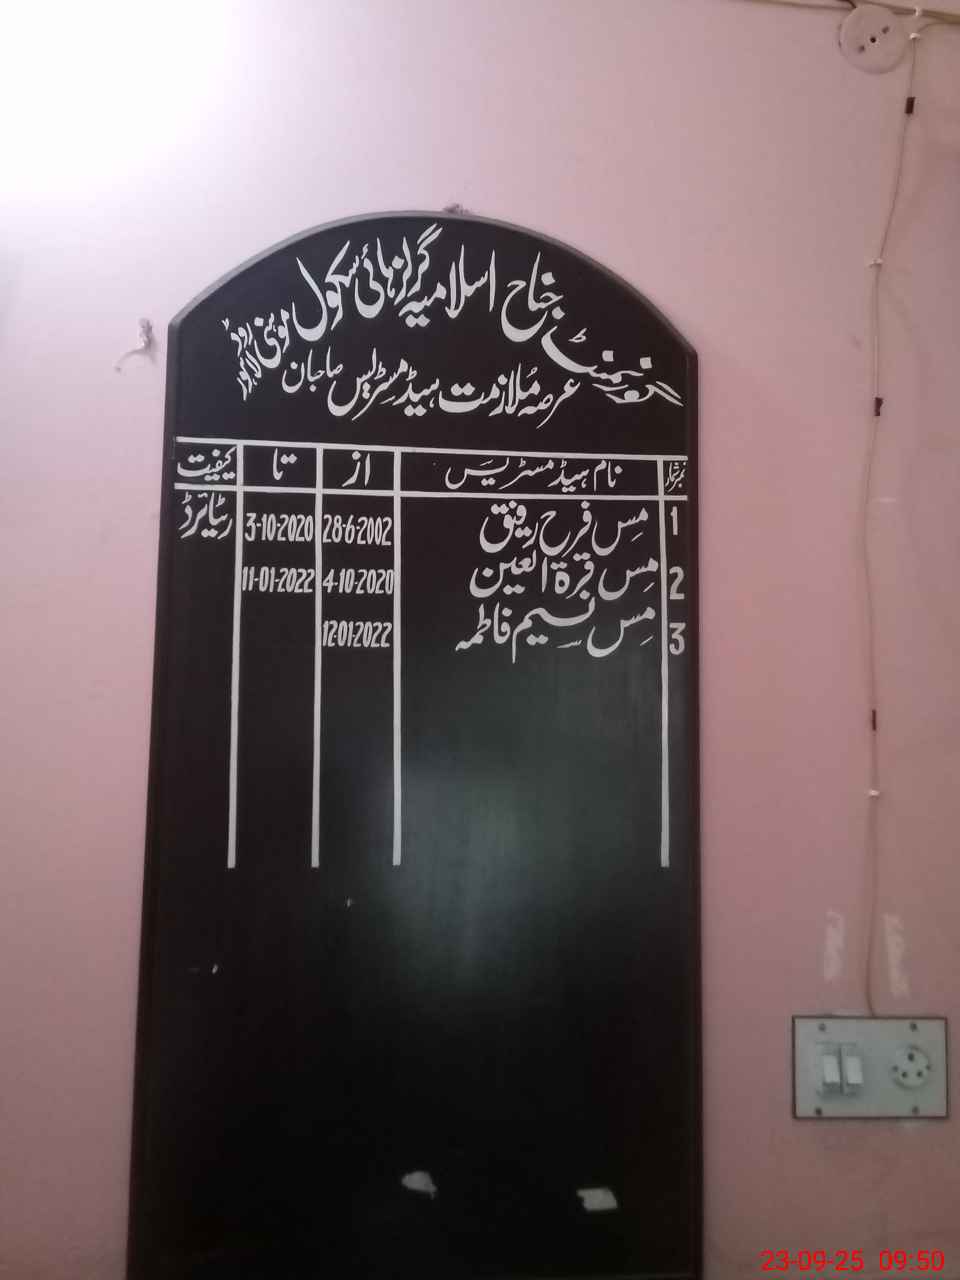 گورنمنٹ جناح اسلامیہ گرلز ہائی سکول موہنی روڈ لاہور
عرصہ مُلازمت ہیڈ مسٹریس صاحبان
نمبر شمار نام ہیڈ مسٹریس از تا کیفیت
1 مِس فرح رفیق 28-6-2002 3-10-2020 ریٹائرڈ
2 مِس قرۃ العین 4-10-2020 11-01-2022
3 مِس نسیم فاطمہ 12-01-2022
23-09-25 09:50